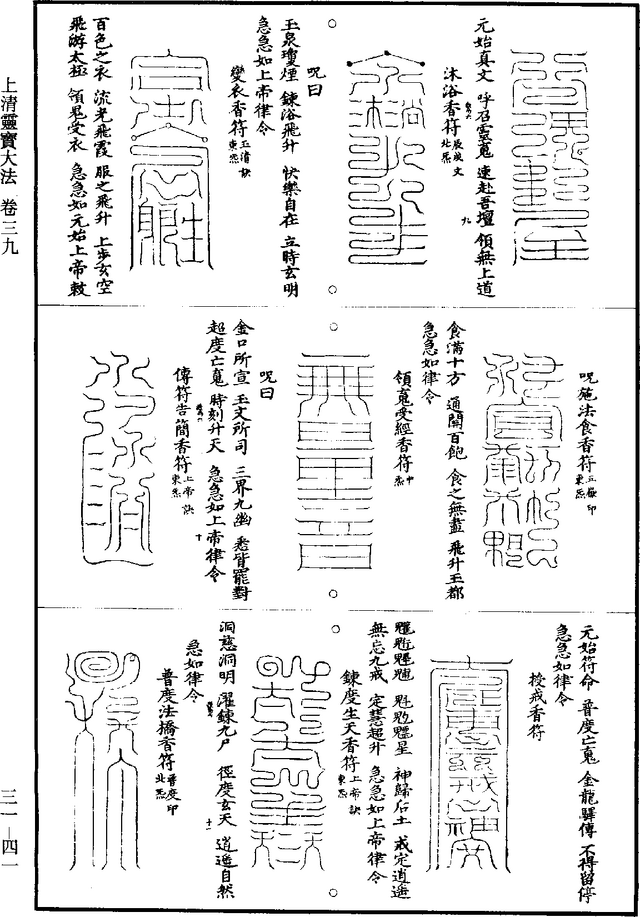 上清靈寶大法 卷三九
三一—四一
元始真文 呼召靈䰟 速赴吾壇 領無上道
沐浴香符
北炁
呪曰
玉泉瓊煙 鍊浴飛升 快樂自在 立時玄明
急急如上帝律令
變衣香符 玉清訣 東炁
百色之衣 流光飛霞 服之飛升 上步玄空
飛游太極 領晃受衣 急急如元始上帝敕
呪施法食香符 五嶽印 東炁
食滿十方 通開百飽 食之無盡 飛升玉都
急急如律令
領䰟受經香符 中炁
呪曰
金口所宣 玉文所司 三界九幽 悉皆罷對
超度亡䰟 時刻升天 急急如上帝律令
傳符告簡香符 上帝訣 東炁
元始符命 普度亡䰟 金龍驛傳 不得留停
急急如律令
授戒香符
神歸后土 戒定逍遥
無忘九戒 定慧超升 急急如上帝律令
鍊度生天香符 上帝訣 東炁
洞慈洞明 濯鍊九尸 徑度玄天 逍遥自然
急如律令
普度法橋香符 普度印 北炁